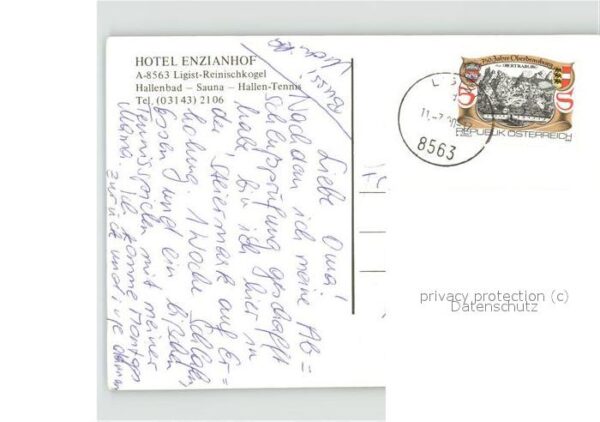 HOTEL ENZIANHOF
A-8563 Ligist-Reinischkogel
Hallenbad — Sauna — Hallen-Tennis
Tel. (03143) 2106
Liebe Oma!
Nachdem ich meine Ab=
schlußprüfung geschafft
habe bin ich hier in
der Steiermark auf Er=
holung. 1 Woche Schlafen,
Essen und ein bißchen
Tennisspielen mit meiner
Mama. Ich komme Montags
zurück und
Bussi
750 Jahre Obertraburg
5
REPUBLIK ÖSTERREICH
8563
privacy protection (c)
Datenschutz